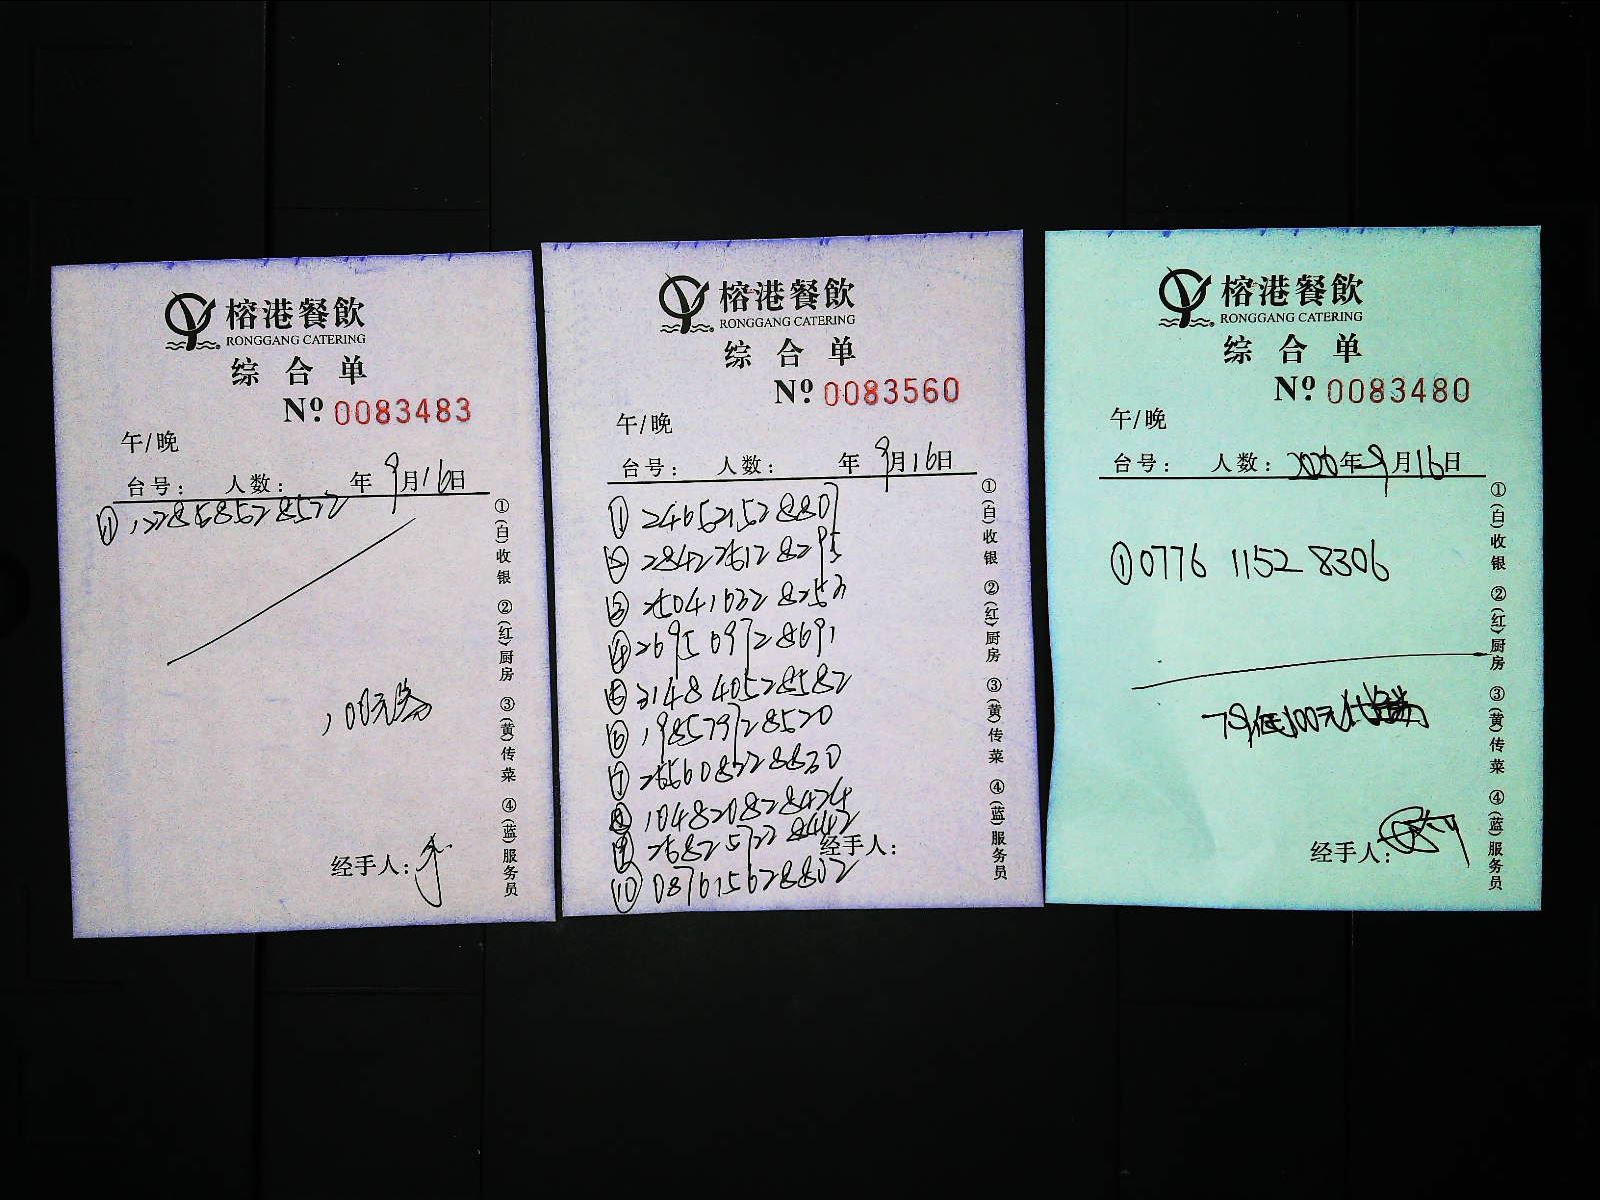 榕港餐飲
RONGGANG CATERING
综合单
Nº 0083483
午/晚
台号： 人数： 年9月16日
①
100元券
经手人：
①(白)收银 ②(红)厨房 ③(黄)传菜 ④(蓝)服务员
榕港餐飲
RONGGANG CATERING
综合单
Nº 0083560
午/晚
台号： 人数： 年9月16日
① 246521528801
② 284226128295
③ 250416328253
④ 269509728691
⑤ 314840528582
⑥ 198579728520
⑦ 265608228830
⑧ 104820828424
⑨ 268257228442
⑩ 087615628802
经手人：
①(白)收银 ②(红)厨房 ③(黄)传菜 ④(蓝)服务员
榕港餐飲
RONGGANG CATERING
综合单
Nº 0083480
午/晚
台号： 人数： 2020年9月16日
① 0776 1152 8306
100元
经手人：
①(白)收银 ②(红)厨房 ③(黄)传菜 ④(蓝)服务员